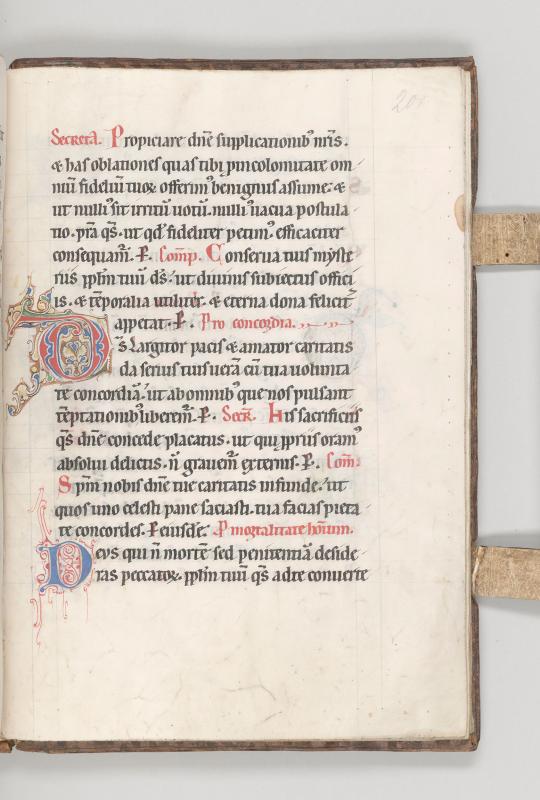 201
Secreta. Propiciare dn̄e supplicationib' nr̄is.
⁊ has oblationes quas tibi p̱ incolomitate om
niū fideliū tuoꝝ offerim' benignus assume. ⁊
ut nulli' sit irritū uotū. nulli' uacua postula
tio. p̄ra q̄s. ut qd' fideliter petim' efficaciter
consequam̄. P̱. Comp̄. Conserua tuis myste
riis pp̄lm̄ tuū ds̄. ut diuinis subiectus offici
is. ⁊ tēporalia utiliter. ⁊ eterna dona felicit̄
appetat. P̱. Pro concordia.
Ds̄ largitor pacis ⁊ amator caritatis
da seruis tuis uerā cū tua uolunta
te concordiā. ut ab omnib' que nos pulsant
tēptationib' liberem̄. P̱. Secr̄. His sacrificiis
q̄s dn̄e concede placatus. ut qui p̱priis oram'
absolui delictis. n̄ grauem̄ externis. P̱. Com̄.
Spm̄ nobis dn̄e tue caritatis infunde. ut
quos uno celesti pane saciasti. tua facias pieta
te concordes. P̱ eiusde. P̱ mortalitate hōium.
Deus qui n̄ mortē sed penitentiā deside
ras peccatoꝝ. pp̄lm̄ tuū q̄s ad te conuerte